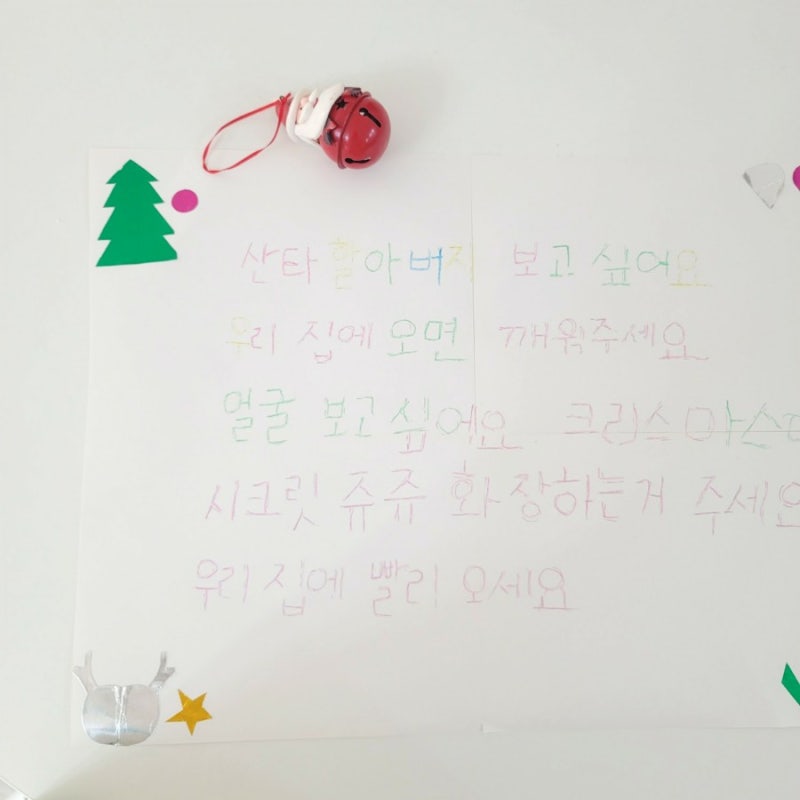 산타 할아버지 보고 싶어요
우리 집에 오면 깨워주세요
얼굴 보고 싶어요 크리스마스
시크릿 쥬쥬 화장하는거 주세요
우리 집에 빨리 오세요